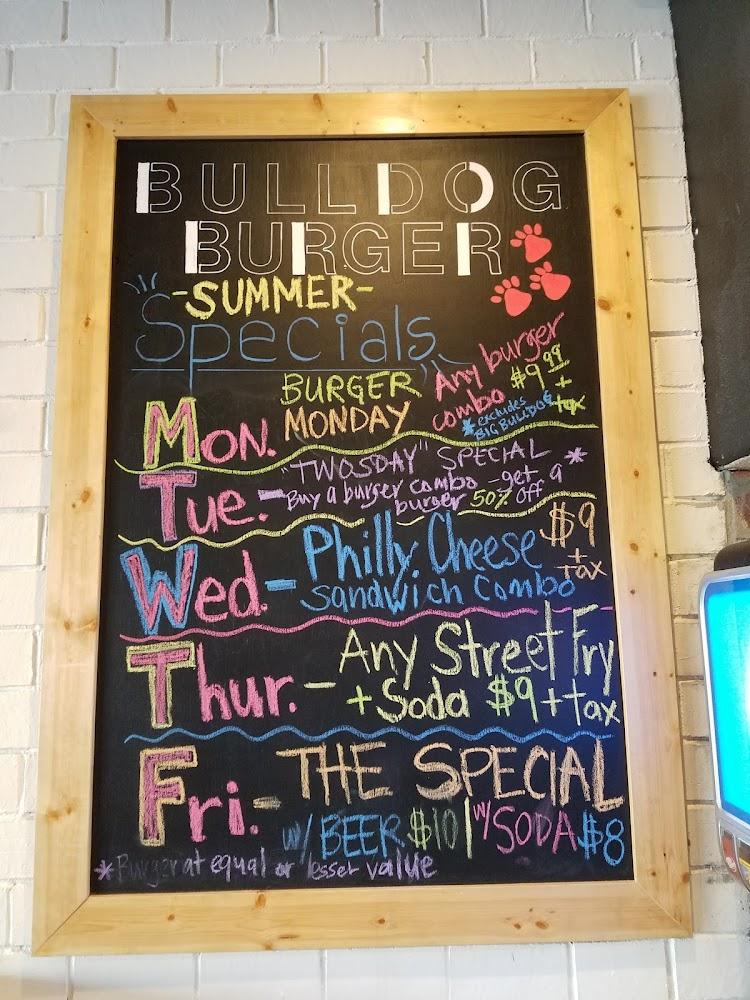 BULLDOG
BURGER
-SUMMER-
Specials
MON. BURGER MONDAY Any burger combo $9.99 + tax
*excludes BIG BULLDOG
Tue. - "TWOSDAY" SPECIAL *
Buy a burger combo - get a burger 50% off
Wed. - Philly Cheese $9 + tax
Sandwich Combo
Thur. - Any Street Fry
+ Soda $9 + tax
Fri. - THE SPECIAL
w/ BEER $10 | w/ SODA $8
*Burger at equal or lesser value